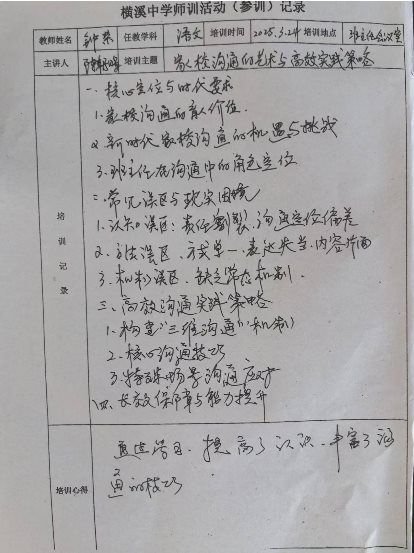 横溪中学师训活动（参训）记录
教师姓名 钟荣 任教学科 语文 培训时间 2025.3.24 培训地点 班主任会议室
主讲人 培训主题 家校沟通的艺术与高效实践策略
培训记录
一、核心定位与时代要求
1.家校沟通的育人价值
2.新时代家校沟通的机遇与挑战
3.班主任在沟通中的角色定位
二、常见误区与现实困境
1.认知误区：责任割裂，沟通定位偏差
2.方法误区，方式单一，表达失当，内容片面
3.机制误区，缺乏常态机制.
三、高效沟通实践策略
1.构建“三维沟通”机制
2.核心沟通技巧
3.特殊场景沟通应对
四、长效保障与能力提升
培训心得
通过学习，提高了认识，丰富了沟
通的技巧